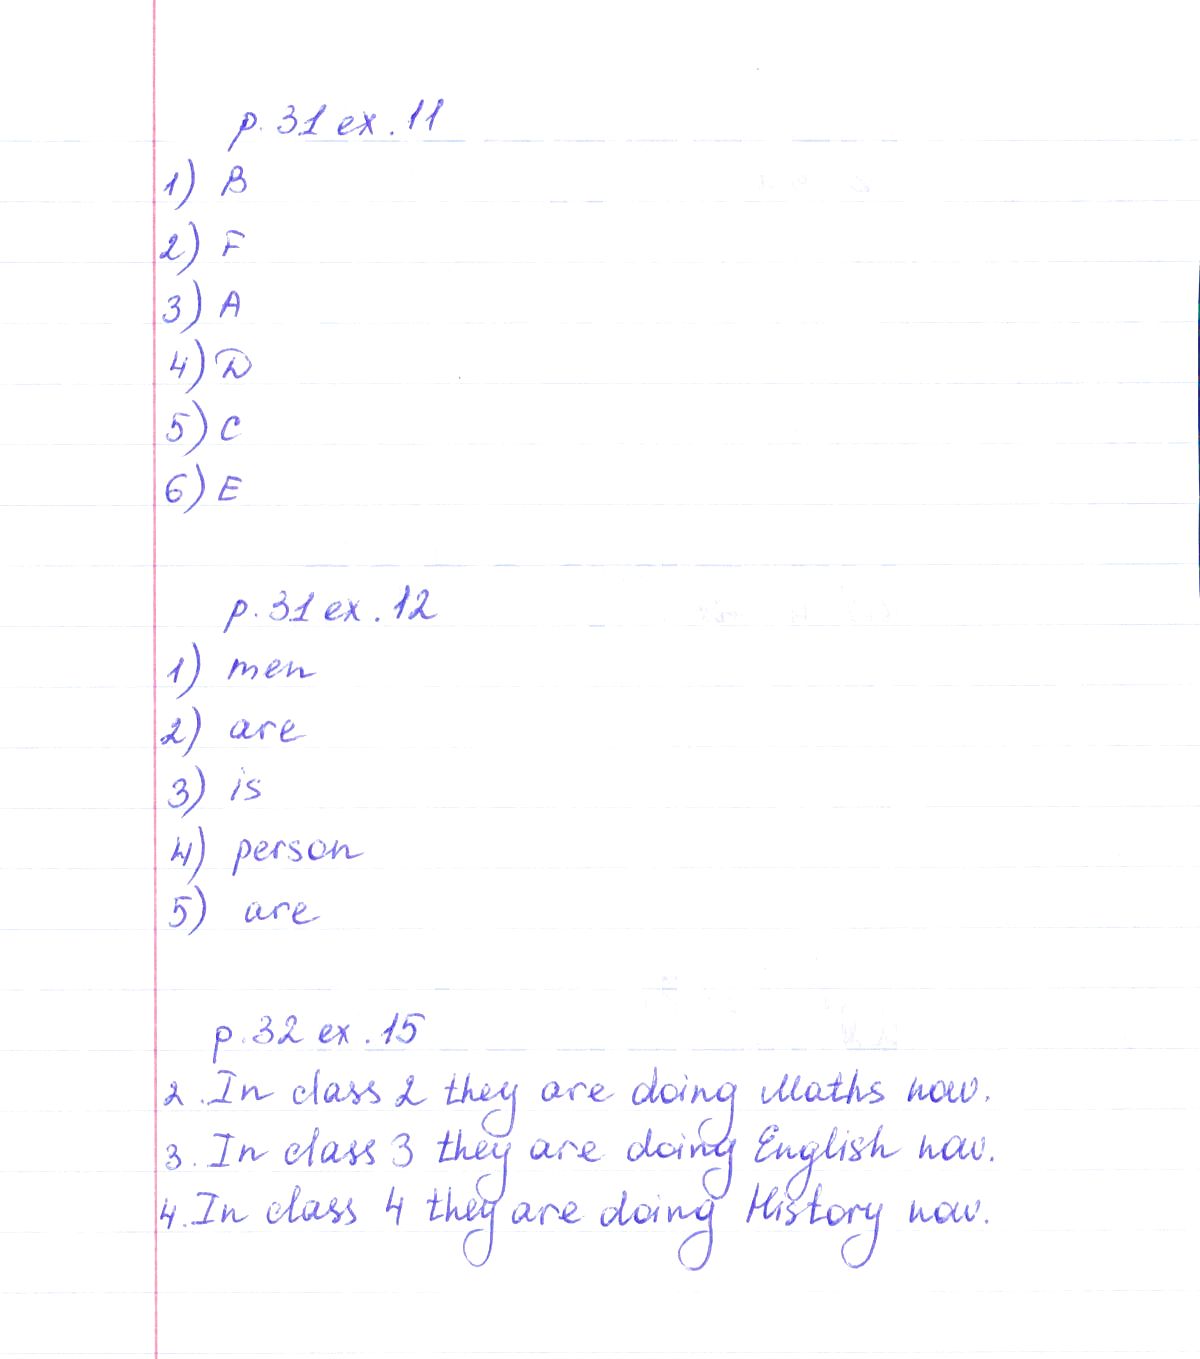 p. 31 ex. 11
1) B
2) F
3) A
4) D
5) C
6) E
p. 31 ex. 12
1) men
2) are
3) is
4) person
5) are
p. 32 ex. 15
2. In class 2 they are doing Maths now.
3. In class 3 they are doing English now.
4. In class 4 they are doing History now.